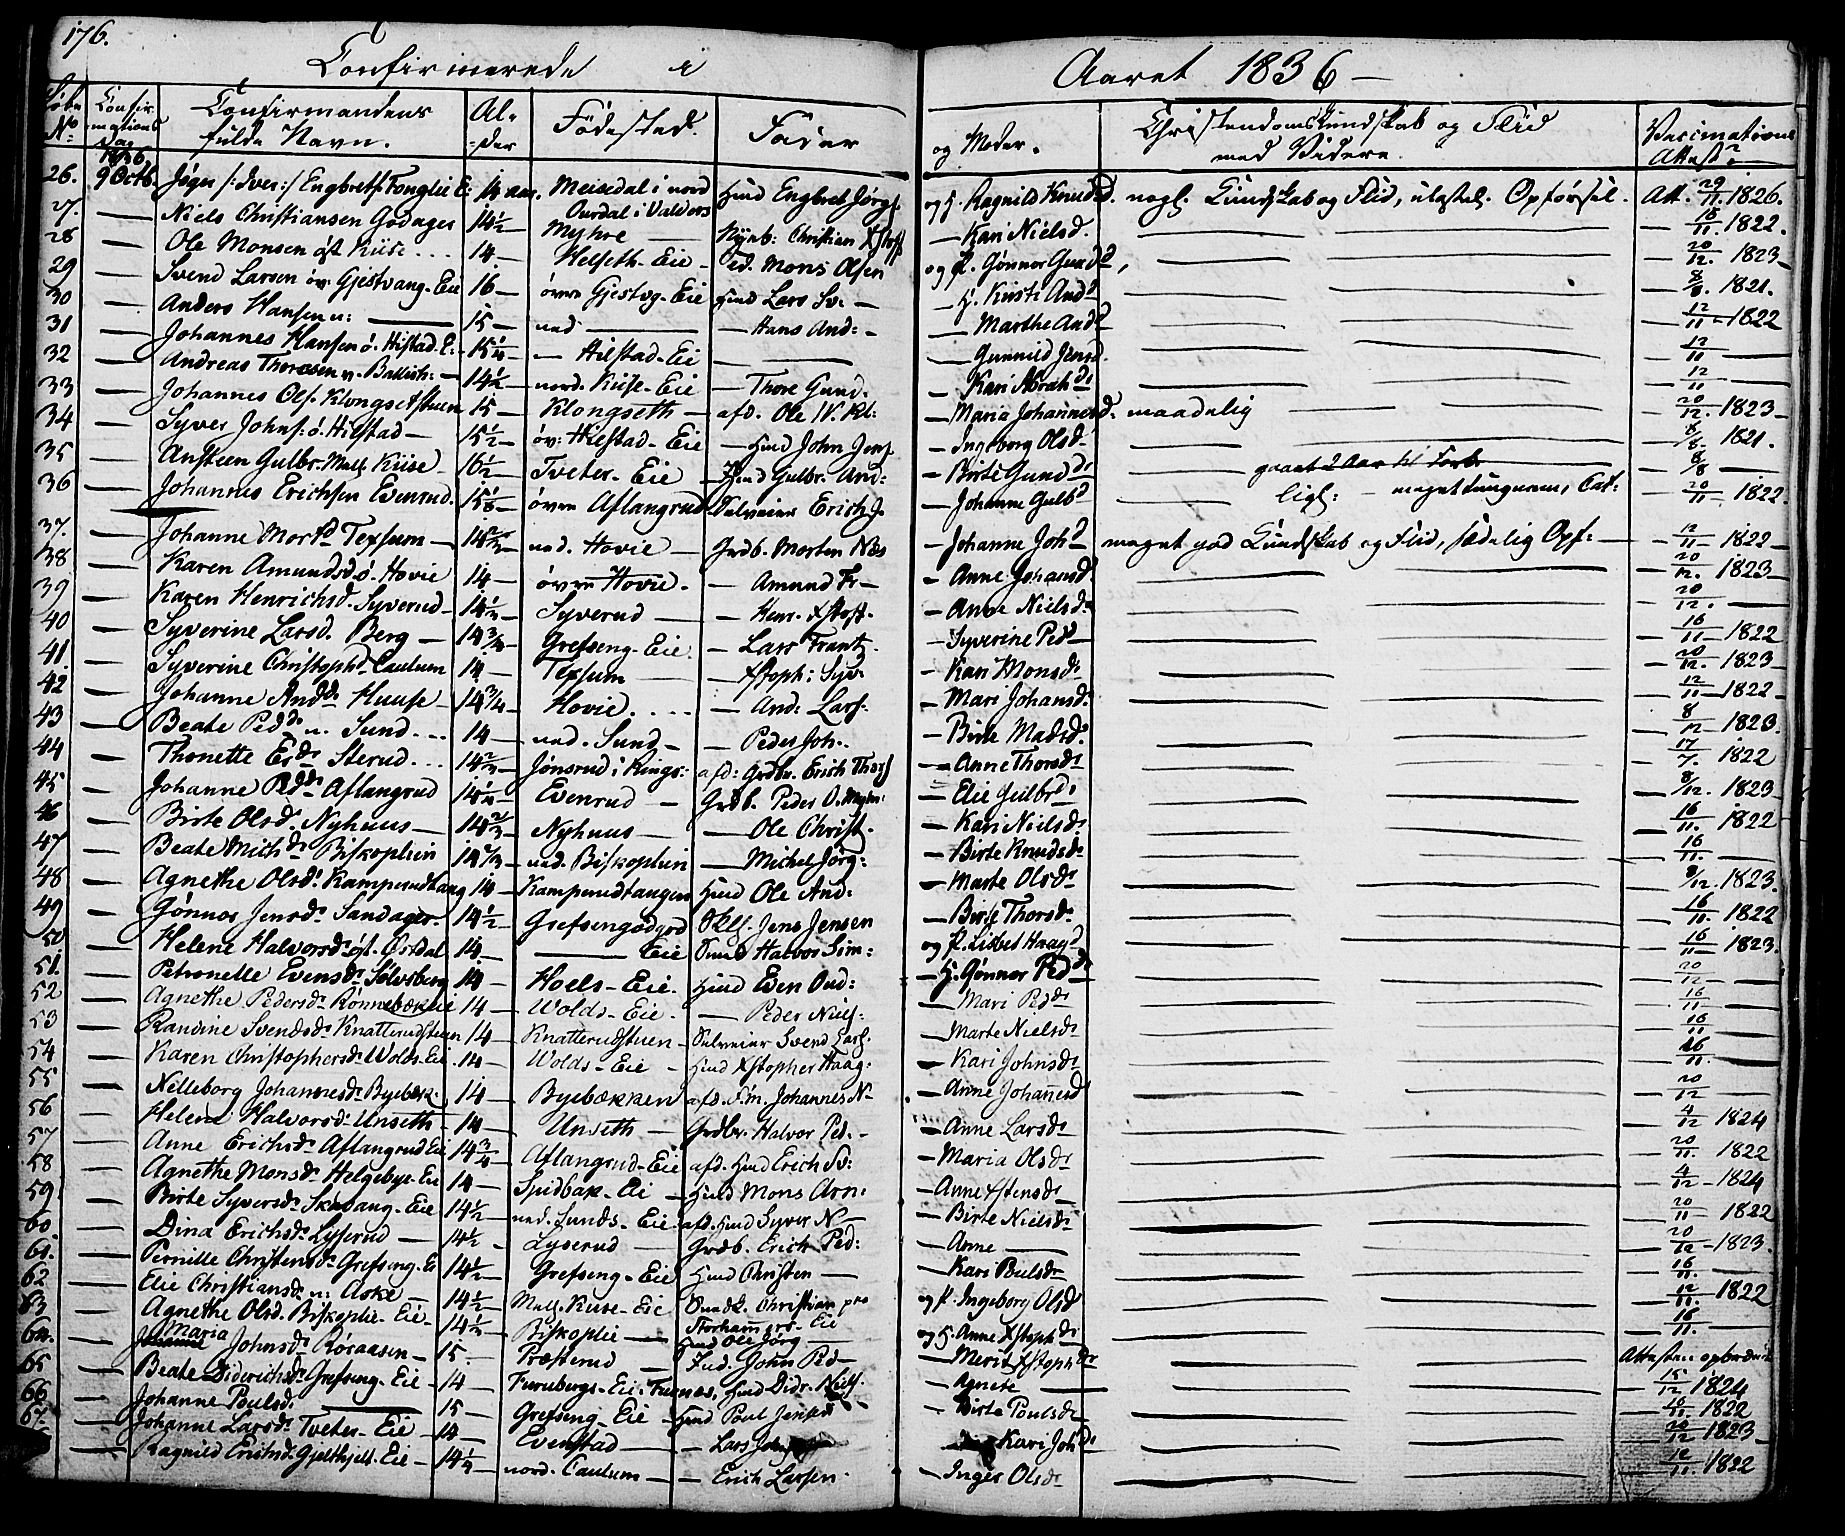 176.
Confirmerede i Aaret 1836 —
Løbe No. Confirmations Dag Confirmandens fulde Navn. Alder Fødested. Fader og Moder. Christendomskundskab og Flid med Videre. Vaccinations Attest
1836
26. 9 Octb. Engbretsf. Meisedal i nord Hmd Engbret Jørgf. og H. Ragnild Knudsd. nogl. Kundskab og Flid, ulastel. Opførsel. Att. 29/11 1826.
Ourdal i Valders
27. — Niels Christiansen Godager 14½ Myhre — Christian Xstoff — Kari Nielsd. — 18/11. 1822.
28 — Ole Monsen øst Kiise . . . 14. — Helseth-Eie — Mons Olsen og f. Gønnor Gundd. — 20/12. 1823 —
29 — Svend Larsen øv: Gjestvang-Eie 16 — øvre Gjestvg-Eie Hmd Lars Sv: — H. Kirsti Andd. — 8/8. 1821.
30 — Anders Hansen n: — 15 — ned — Hans And: — Marthe Andd. — 12/11 — 1822
31 — Johannes Hansen ø. Hilstad-E: 15¼ — Hilstad-Eie — Gunnild Jensd. — 12/11 —
32 — Andreas Thoresen 14½ nord. Kiise-Eie — Thore Gund. — Kari Abrahd. — 12/11 —
33 — Johannes Ols. Klongsethstuen 15 — Klongseth — afd. Ole — Maria Johannesd. maadelig — 20/12. 1823 —
34 — Syver Johnf: ø. Hilstad — 15½ — øv: Hilstad-Eie — Hmd John Jenf — Ingeborg Olsd. — 8/8 1821.
35 — Ansteen Gulbr. Mell. Kiise — 16½ — Tveter-Eie — Hmd Gulbr. And: — Birte Gundd. — gaaet 2 Aar til Forb. — 8/8 —
36 — Johannes Erichsen Evenrud. 15⅛ — øvre Aflangrud Erich J. — Johanne Gulbd. — ligl: — meget tungnem, — 20/11. 1822.
37. — Johanne Mortd. Texsum — ned. Hovie — Grdb. Morten Næs — Johanne Johd. meget god Kundskab og Flid, sædelig Opf: — 12/11 — 1822 —
38 — Karen Amundsd. ø. Hovie 14 — øvre Hovie. — Amund Fr — Anne Johansd. — 20/12. 1823 —
39 — Karen Henrichsd. Syverud — Syverud — Henr. Xstof. — Anne Nielsd. — 20/12. —
40 — Syverine Larsd. Berg — 14¾ — Grefseng-Eie — Lars Frantz. — Syverine Ped. — 16/11 — 1822
41. — Syverine Christophd. Caulum 14 — Texsum — Xstoph: Syv. — Kari Monsd. — 20/12. 1823 —
42 — Johanne Andd. Huuse — 14¾ — Hovie. . . . — And: Lars. — Mari Johansd. — 12/11 — 1822 —
43 — Beate Pedd. n. Sund. . . 14 — ned. Sund — Peder Joh. — Birte Madsd. — 8/12 — 1823.
44 — Thonette Erd. Sterud . . . 14⅔ — Jønsrud i Rings: afd: Grdbr. Erich Thorf — Anne Thorsd. — 17/7. 1822
45 — Johanne Pedd. Aflangrud 14¼ — Evenrud — Grdb. Peder O. — Elie Gulbrd. — 8/12. 1823 —
46 — Birte Olsd. Nyhuus — 14⅔ — Nyhuus — Ole Christ. — Kari Nielsd. — 16/11. 1822
47 — Beate Michd. Biskoplien ned. Biskoplien — Michel Jørg: — Birte Knudsd. — 16/11. —
48 — Agnethe Olsd. Kamperudtang 14 — Kamperudtangen Hmd Ole And: — Marte Olsd. — 8/12. 1823.
49 — Gønnor Jensd. Sandager 14½ — Grefsengødegrd Jens Jensen — Birte Thorsd. — 16/11. 1822
50 — Helene Halvorsd. øst. Østdal 14. — Eie Halvor Sim: og f. Lisbet Haagd. — 16/11 — 1823.
51. — Petronelle Evensd. Sølvsberg 14 — Hoels-Eie. Hmd Even Oud: — H. Gønnor Pedd. — 20/12 —
52 — Agnethe Pedersd. 14 — Wolds-Eie. — Peder Niels: — Mari Pedd. — 16/11 —
53 — Randine Svendsd. Knatterudstuen 14 — Knatterudstuen — Svend Lars. — Marte Nielsd. — 16/11 —
54 — Karen Christophersd. Wolds-Eie . 14 — Wolds-Eie — Hmd Xstopher Haag: — Kari Johnsd. — 16/11. —
55 — Nelleborg Johannesd. Byebæk. 14 — Byebækken afd. Johannes N — Anne Johannesd. — 20/12 —
56 — Helena Halvorsd. Unseth 14 — Unseth — Grdbr. Halvor Ped. — Anne Larsd. — 4/12 1824
57 — Anne Erichsd. Aflangrud Eie 14¾ — Aflangrud-Eie afd. Hmd Erich Sv: — Maria Olsd. — 20/11. 1822
58 — Agnethe Monsd. Helgebye-Eie 14 — Spidbak-Eie — Hmd Mons Arn: — Anne Estensd. — 4/12 — 1824
59 — Birte Syversd. Eie 14½ — ned. Sunds-Eie. afd. Hmd Syver N — Birte Nielsd. — 20/11 — 1822
60 — Dina Erichsd. Lyserud — 14½ — Lyserud — Grdb. Erich Ped: — Anne — 20/12 — 1823.
61. — Pernille Christensd. Grefseng-E 14½ — Grefseng-Eie Hmd Christen — Kari — 16/11. —
62 — Elie Christiansd. n: Aske — 14½ — Mell. Kiise-Eie Christian og f. Ingeborg Olsd — 12/11. 1822
Storhammers-Eie
63 — Agnethe Olsd. Biskoplie-Eie — 14½ — Biskoplie — Hmd Ole Jørg — og H. Anne Xstophd. — 16/11. —
64. — Maria Johnsd. Røsaasen — 15. — Præsterud — John Ped — Merit Xstophd. — Attesten
65 — Beate Diderichsd. Grefseng-Eie — 14 — Furubergs-Eie: Furnæs, Hmd Didr. Niels. — Agnete — 15/12 1824
66 — Johanne Poulsd. — 15 — Grefseng-Eie — Hmd Poul Jensen — Birte Poulsd. — 1822
67. — Johanne Larsd. Tveter-Eie — 14 — Evenstad — Lars — Kari Johd. — 20/12 1823 —
— Ragnild Erichsd. Eie — nord. Caulum — Erich Larsen. — Inger Olsd. — 12/11. 1822